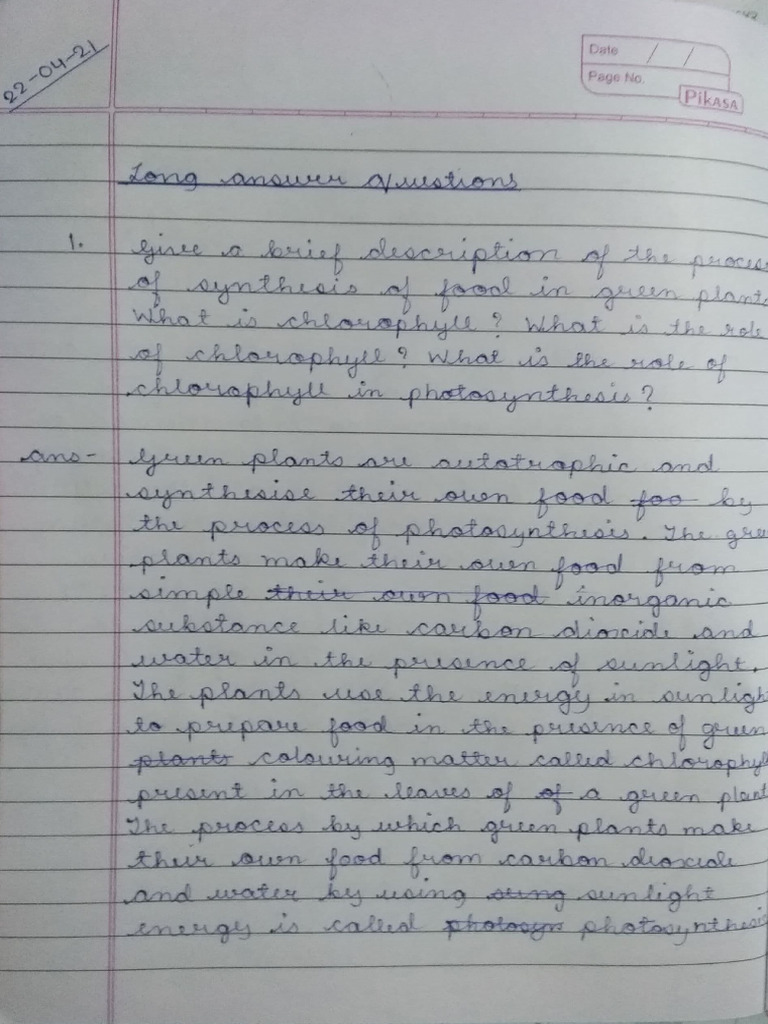 22-04-21
Date / /
Page No.
PikASA
Long answer Questions
1. Give a brief description of the process
of synthesis of food in green plants
What is chlorophyll? What is the role
of chlorophyll? What is the role of
chlorophyll in photosynthesis?
ans- Green plants are autotrophic and
synthesise their own food foo by
the process of photosynthesis. The gre
plants make their own food from
simple their own food inorganic
substance like carbon dioxide and
water in the presence of sunlight.
The plants use the energy in sunligh
to prepare food in the presence of green
plants colouring matter called chlorophyll
present in the leaves of of a green plant
The process by which green plants make
their own food from carbon dioxide
and water by using sung sunlight
energy is called photosyn photosynthesis